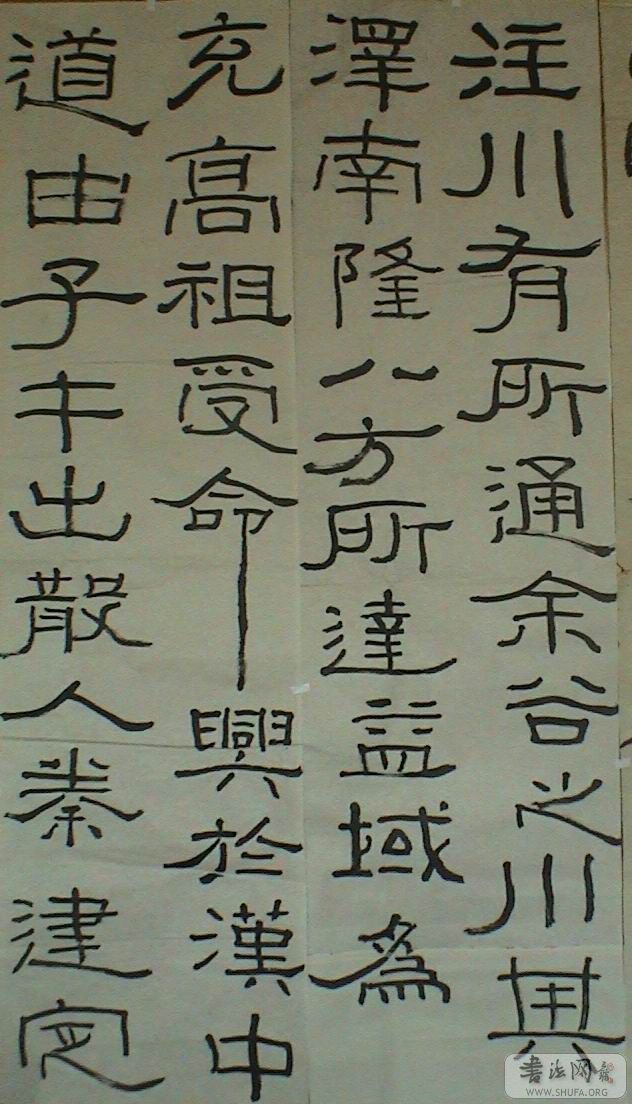 注川有所通余谷之川其
澤南隆八方所達益域為
充高祖受命興於漢中
道由子午出散入秦建定
書法网
WWW.SHUFA.ORG